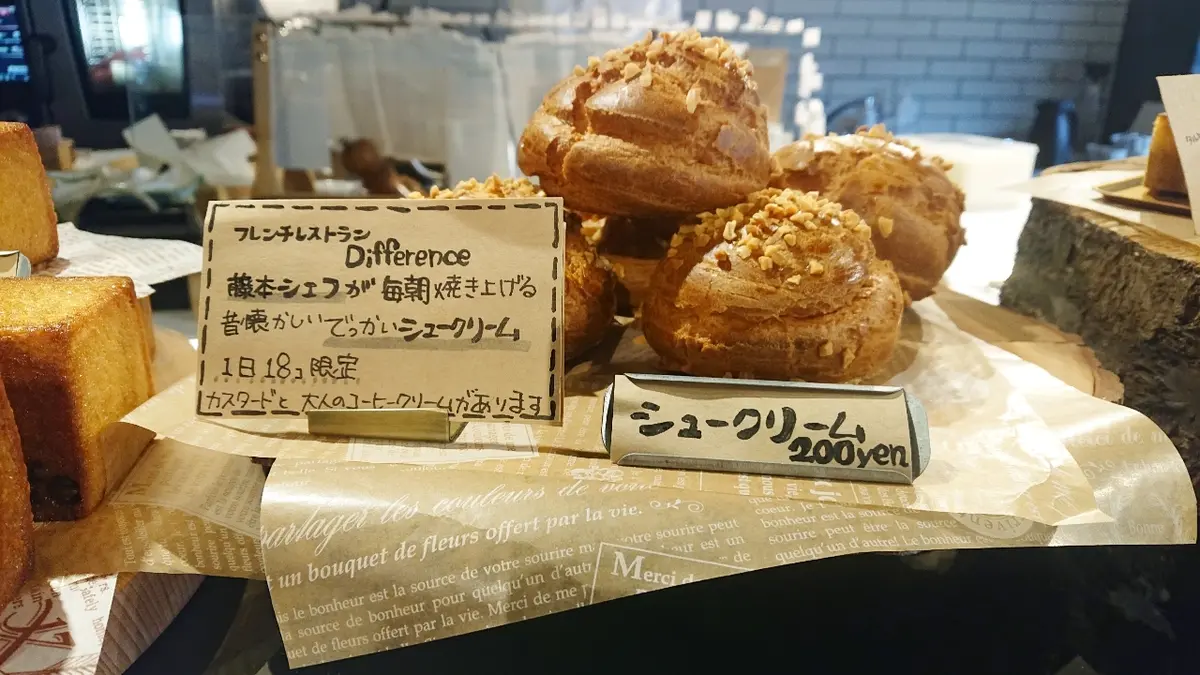 フレンチレストラン
Difference
藤本シェフが毎朝焼き上げる
昔懐かしいでっかいシュークリーム
1日18コ限定
カスタードと大人のコーヒークリームがあります
シュークリーム
200yen
partager les couleurs de
un bouquet de fleurs offert par la vie.
le bonheur est la source de votre sourire
source de bonheur pour quelqu'un d'autr
uet de fleurs offert par la vie. Merci de me
Merci d
sourire peut
eur est un
quelqu'un d'autre! Le bonheur est